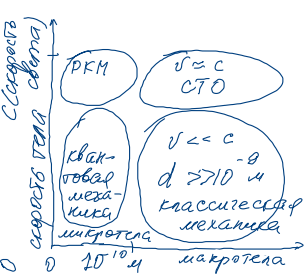 С(скорость света)
скорость тела
0
РКМ
v ≈ c
СТО
кван-
товая
меха-
ника
v << c
d >> 10⁻⁹ м
классическая
механика
микротела
макротела
0
10⁻¹⁰ м